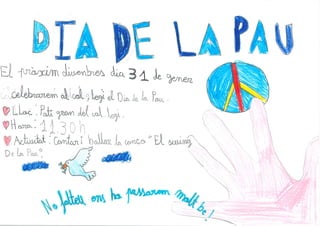 DIA DE LA PAU
El pròxim divendres dia 31 de gener
celebrarem al col·legi el Dia de la Pau.
Lloc: Pati gran del col·legi.
Hora: 11:30h
Activitat: Cantar i ballar la cançó "El
De la Pau"
No falteu ens ho passarem molt bé!